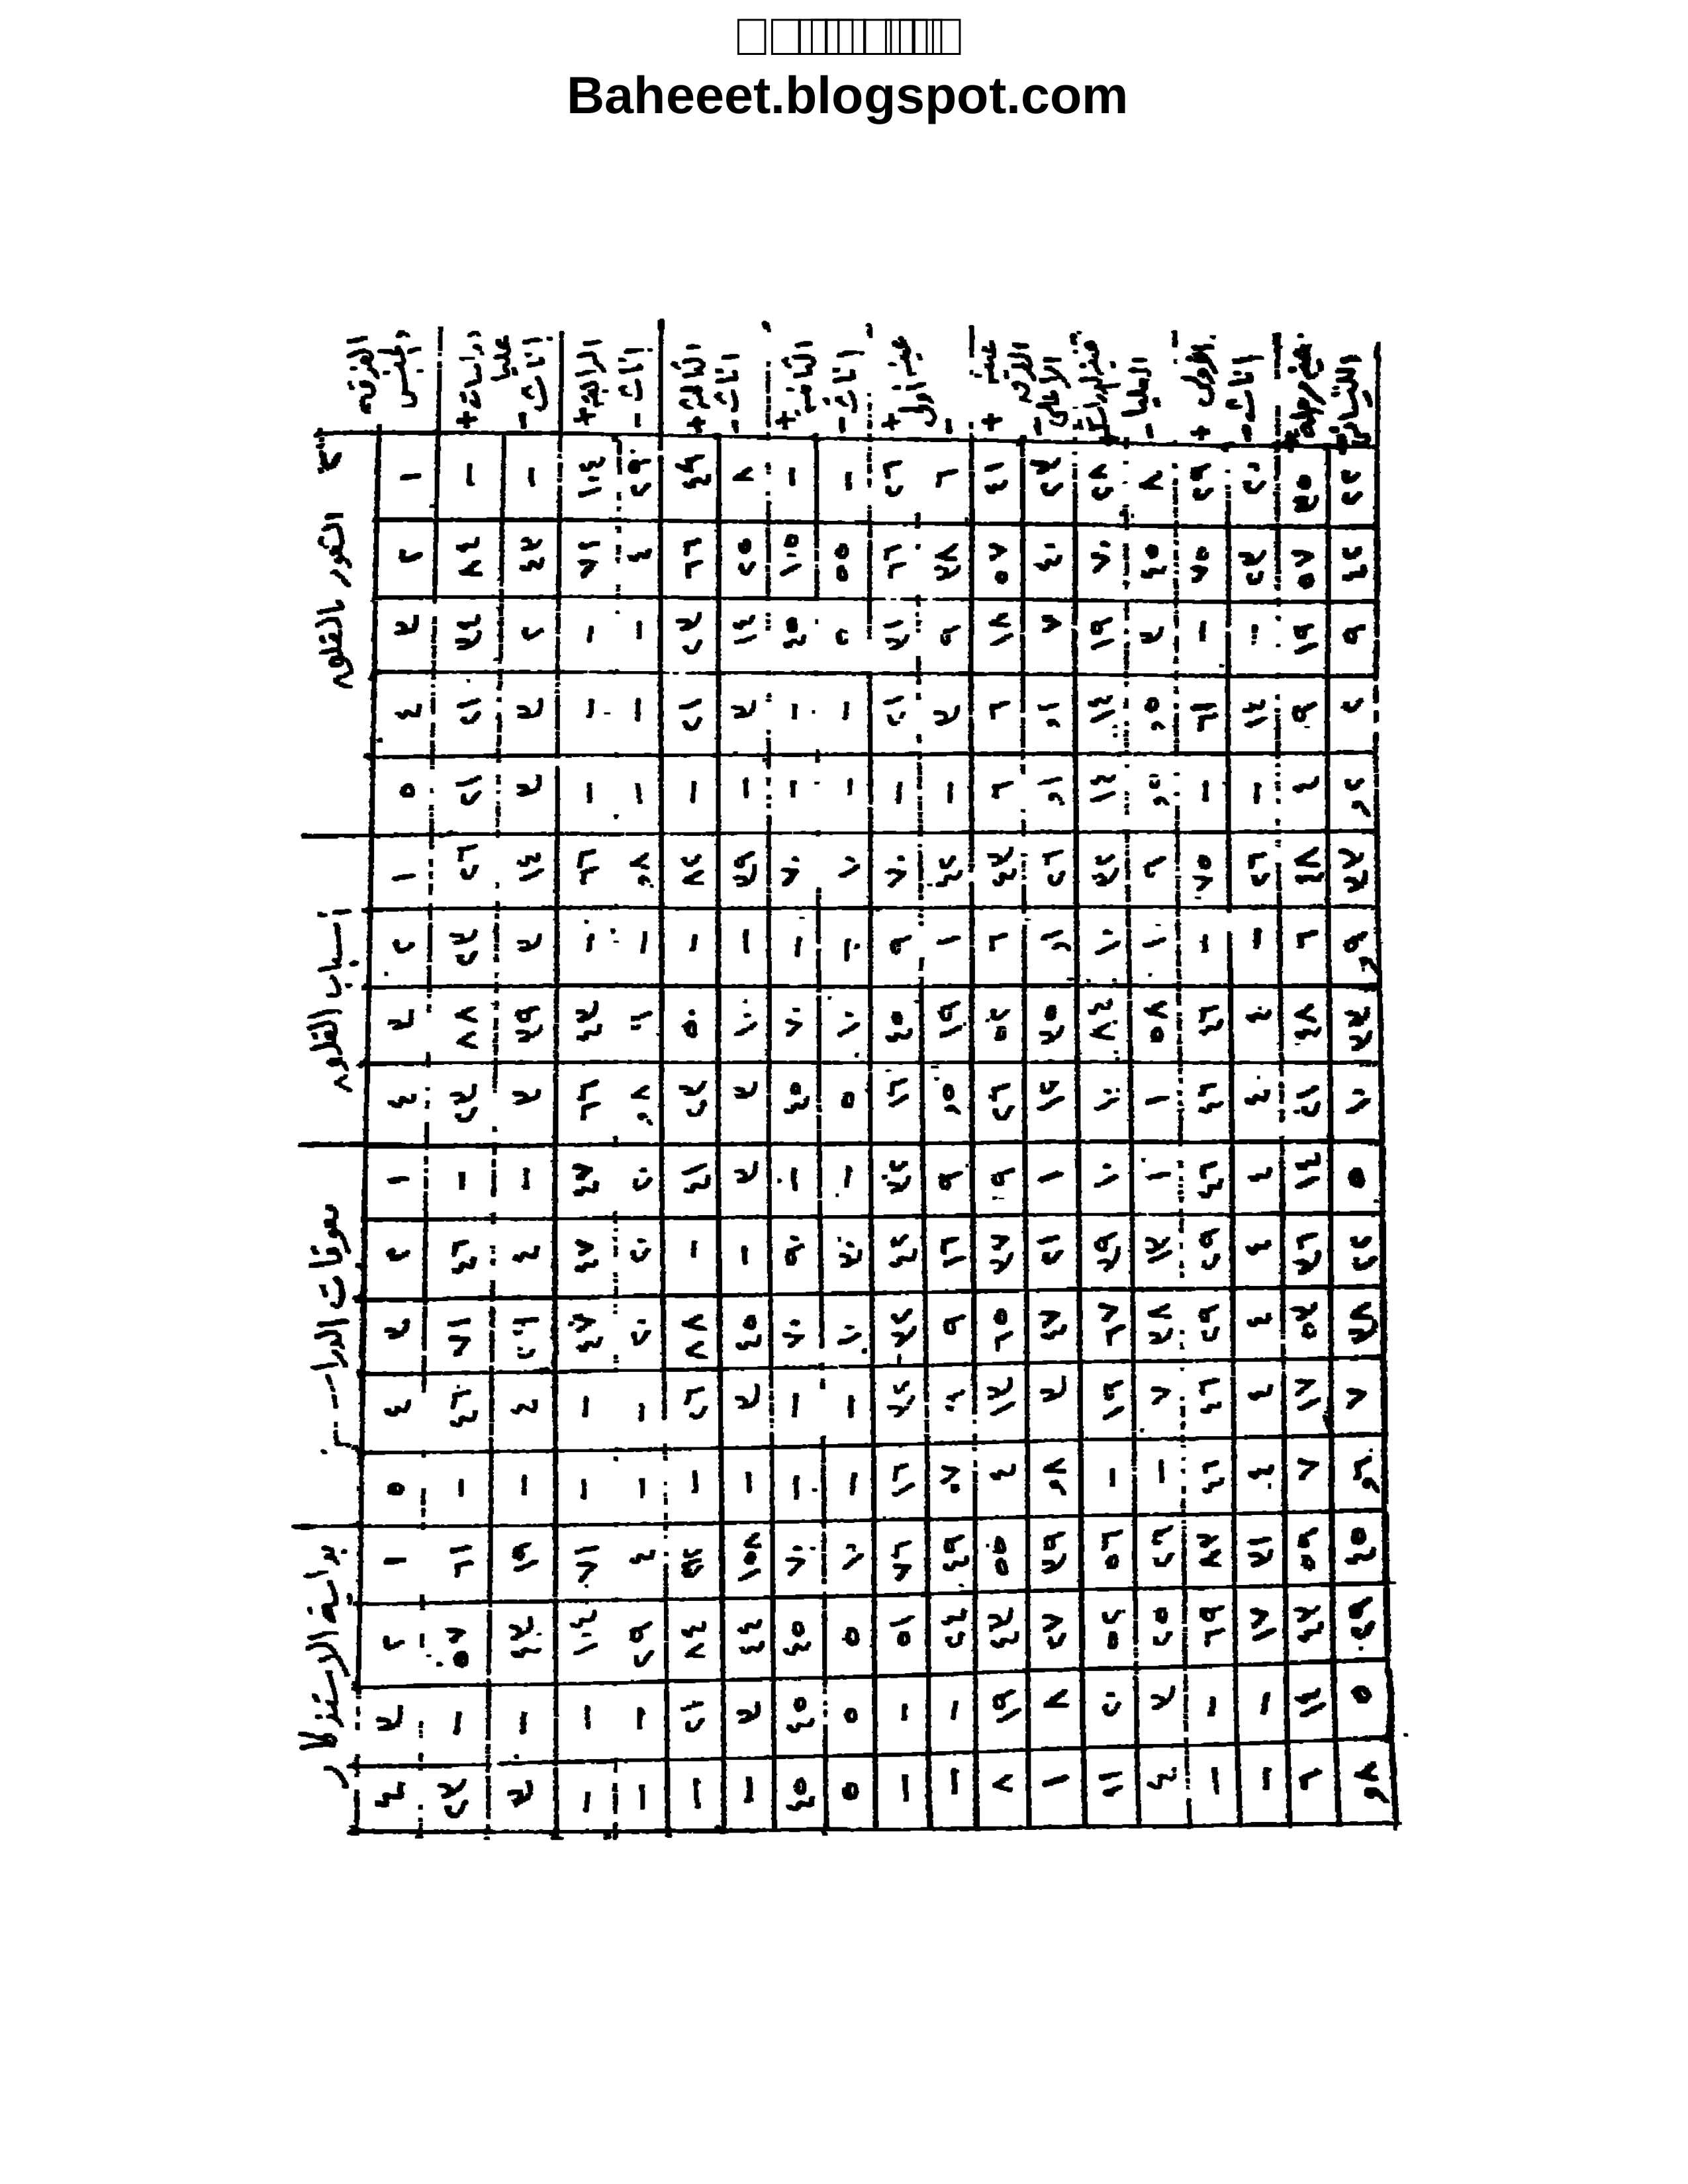 Baheeet.blogspot.com
الشعور بالقلق أسباب القلق معوقات الدراسة بداية الاستذكار
الفرقة والجنس ١ ٢ ٣ ٤ ٥ ١ ٢ ٣ ٤ ١ ٢ ٣ ٤ ٥ ١ ٢ ٣ ٤
دراسات عليا + — ٨٤ ٣٤ ٢١ ٢١ ٢٦ ٢٣ ٨٨ ٢٣ — ٤٦ ٧١ ٤٦ — ٦١ ٥٧ — ٢٣
اناث - — ٤٣ ٢ ٣ ٣ ١٤ ٣ ٣٩ ٣ — ٤ ٢٩ ٤ — ١٩ ٤٣ — ٣
الرابعة + ١٠٤ ٧١ — — — ٦٦ — ٤٣ ٦٦ ٤٧ ٤٧ ٤٧ — — ٧١ ١٠٤ — —
اناث - ٢٩ ٤ — — — ٨و — ٦ ٨و ٢٠ ٢٠ ٢٠ — — ٤ ٢٩ — —
الثالثة + ٤٩ ٦٦ ٢٣ ٢١ — ٨٢ — ٥٠ ٢٣ ٤١ — ٨٨ ٢٦ — ٩٢ ٨٤ ٢١ —
اناث - ٨ ٢٥ ١٤ ٣ — ٣٩ — ١٠ ٣ ٣ — ٤٥ ٣ — ١٥٨ ٤٤ ٣ —
الثانية + — ١٠٥ ٤٥ — — ٧٠ — ٧٠ ٤٥ — ٩٠ ٧٠ — — ٧٠ ٤٥ ٤٥ ٤٥
اناث - — ٥٥ ٥ — — ١٠ — ١٠ ٥ — ٣٠ ١٠ — — ١٠ ٥ ٥ ٥
أولى + ٢٦ ٦٦ ٣١ ٢١ — ٧٠ ٩ ٤٥ ١٦ ٣٢ ٤٢ ٣٢ ١٦ ٧٦ ٥١ — —
- ٦ ٣٨ ٩ ٣ — ٤٢ ١ ١٩ ٥و ٩ ١٦ ٩ ٩ ٧ ٤٩ ٢٤ — —
+ ٤١ ٥٧ ١٨ ٦ ٦ ٤٣ ٦ ٥٢ ٢٦ ٩ ٢٧ ٦٥ ١٣ ٤ ٥٥ ٤٣ ١٩ ٨
الأعلى - ٢٣ ٤٠ ٧ ١و ١و ٢٦ ١و ٣٥ ١٢ ١ ٢١ ٤٧ ٣ ٨و ٣٩ ٢٧ ٨ ١
+ ٢٨ ٧٠ ١٩ ١٤ ١٤ ٣٢ ١٠ ٨٤ ١٠ ١٠ ٣٩ ٦٧ ١٩ — ٥٦ ٥٢ ٢٠ ١١
العليا - ٨ ٤٥ ٣ ٥و ٥و ٦ ١ ٥٨ ١ ١ ١٣ ٣٨ ٧ — ٢٦ ٢٥ ٣ ٤
الأولى + ٢٩ ٧٥ — ٦١ — ٧٥ — ٤٦ ٤٦ ٤٦ ٢٩ ٢٩ ٤٦ ٤٦ ٨٧ ٦٩ — —
اناث - ٢٠ ٢٣ — ١٤ — ٢٦ — ٤٠ ٤ ٤ ٤ ٤ ٤ ٤ ٣١ ١٧ — —
+ ٣٥ ٥٧ ١٩ ٩ ٤ ٤٨ ٦ ٤٨ ٢١ ١٤ ٣٦ ٥٣ ١٧ ٧ ٥٩ ٤٣ ١١ ٦
- ٢٢ ٤٢ ٩ ٢ ٢و ٣٣ ٩و ٣٣ ١٠ ٥ ٢٢ ٣٨ ٧ ٦و ٤٥ ٢٩ ٥ ٨و